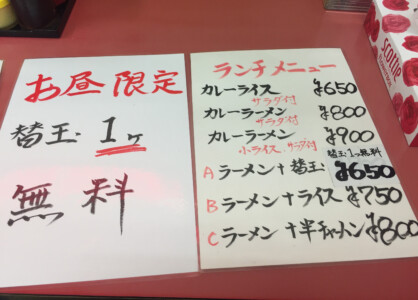 お昼限定
替玉1ヶ
無料
ランチメニュー
カレーライス ¥650
サラダ付
カレーラーメン ¥800
サラダ付
カレーラーメン ¥900
小ライス サラダ付
替玉1つ無料
A ラーメン+替玉 ¥650
B ラーメン+ライス ¥750
C ラーメン+半チャーハン ¥800
scottie